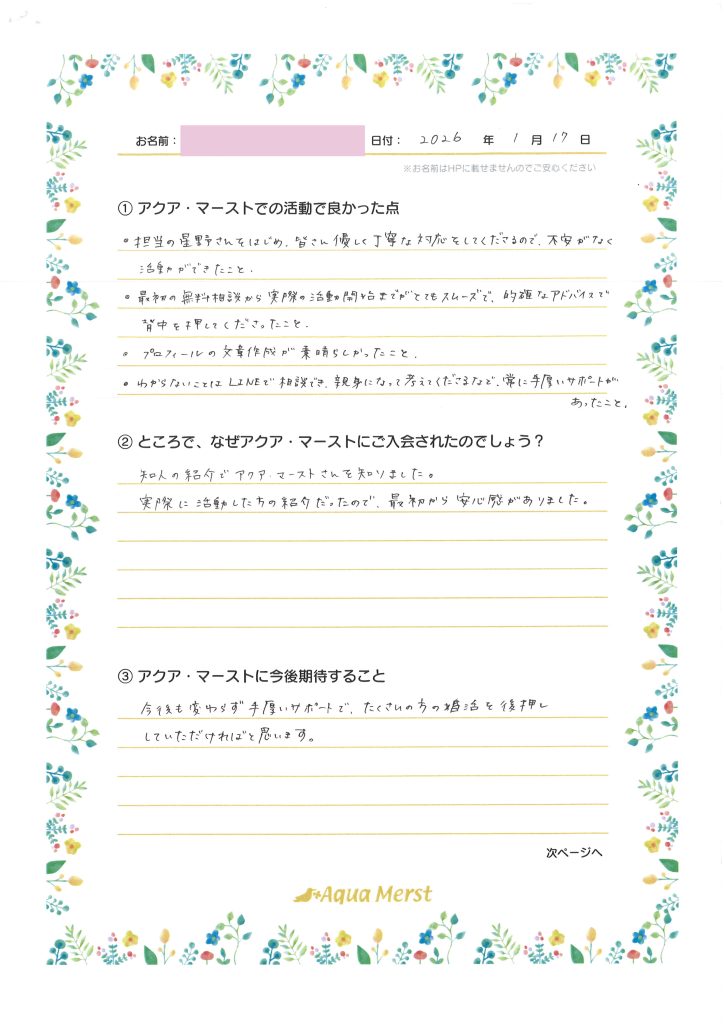 お名前： 日付： 2026 年 1 月 17 日
※お名前はHPに載せませんのでご安心ください
① アクア・マーストでの活動で良かった点
• 担当の星野さんをはじめ、皆さん優しく丁寧な対応をしてくださるので、不安がなく
活動ができたこと。
• 最初の無料相談から実際の活動開始までがとてもスムーズで、的確なアドバイスで
背中を押してくださったこと。
• プロフィールの文章作成が素晴らしかったこと。
• わからないことはLINEで相談でき、親身になって考えてくださるなど、常に手厚いサポートが
あったこと。
② ところで、なぜアクア・マーストにご入会されたのでしょう？
知人の紹介でアクア・マーストさんを知りました。
実際に活動した方の紹介だったので、最初から安心感がありました。
③ アクア・マーストに今後期待すること
今後も変わらず手厚いサポートで、たくさんの方の婚活を後押し
していただければと思います。
次ページへ
Aqua Merst